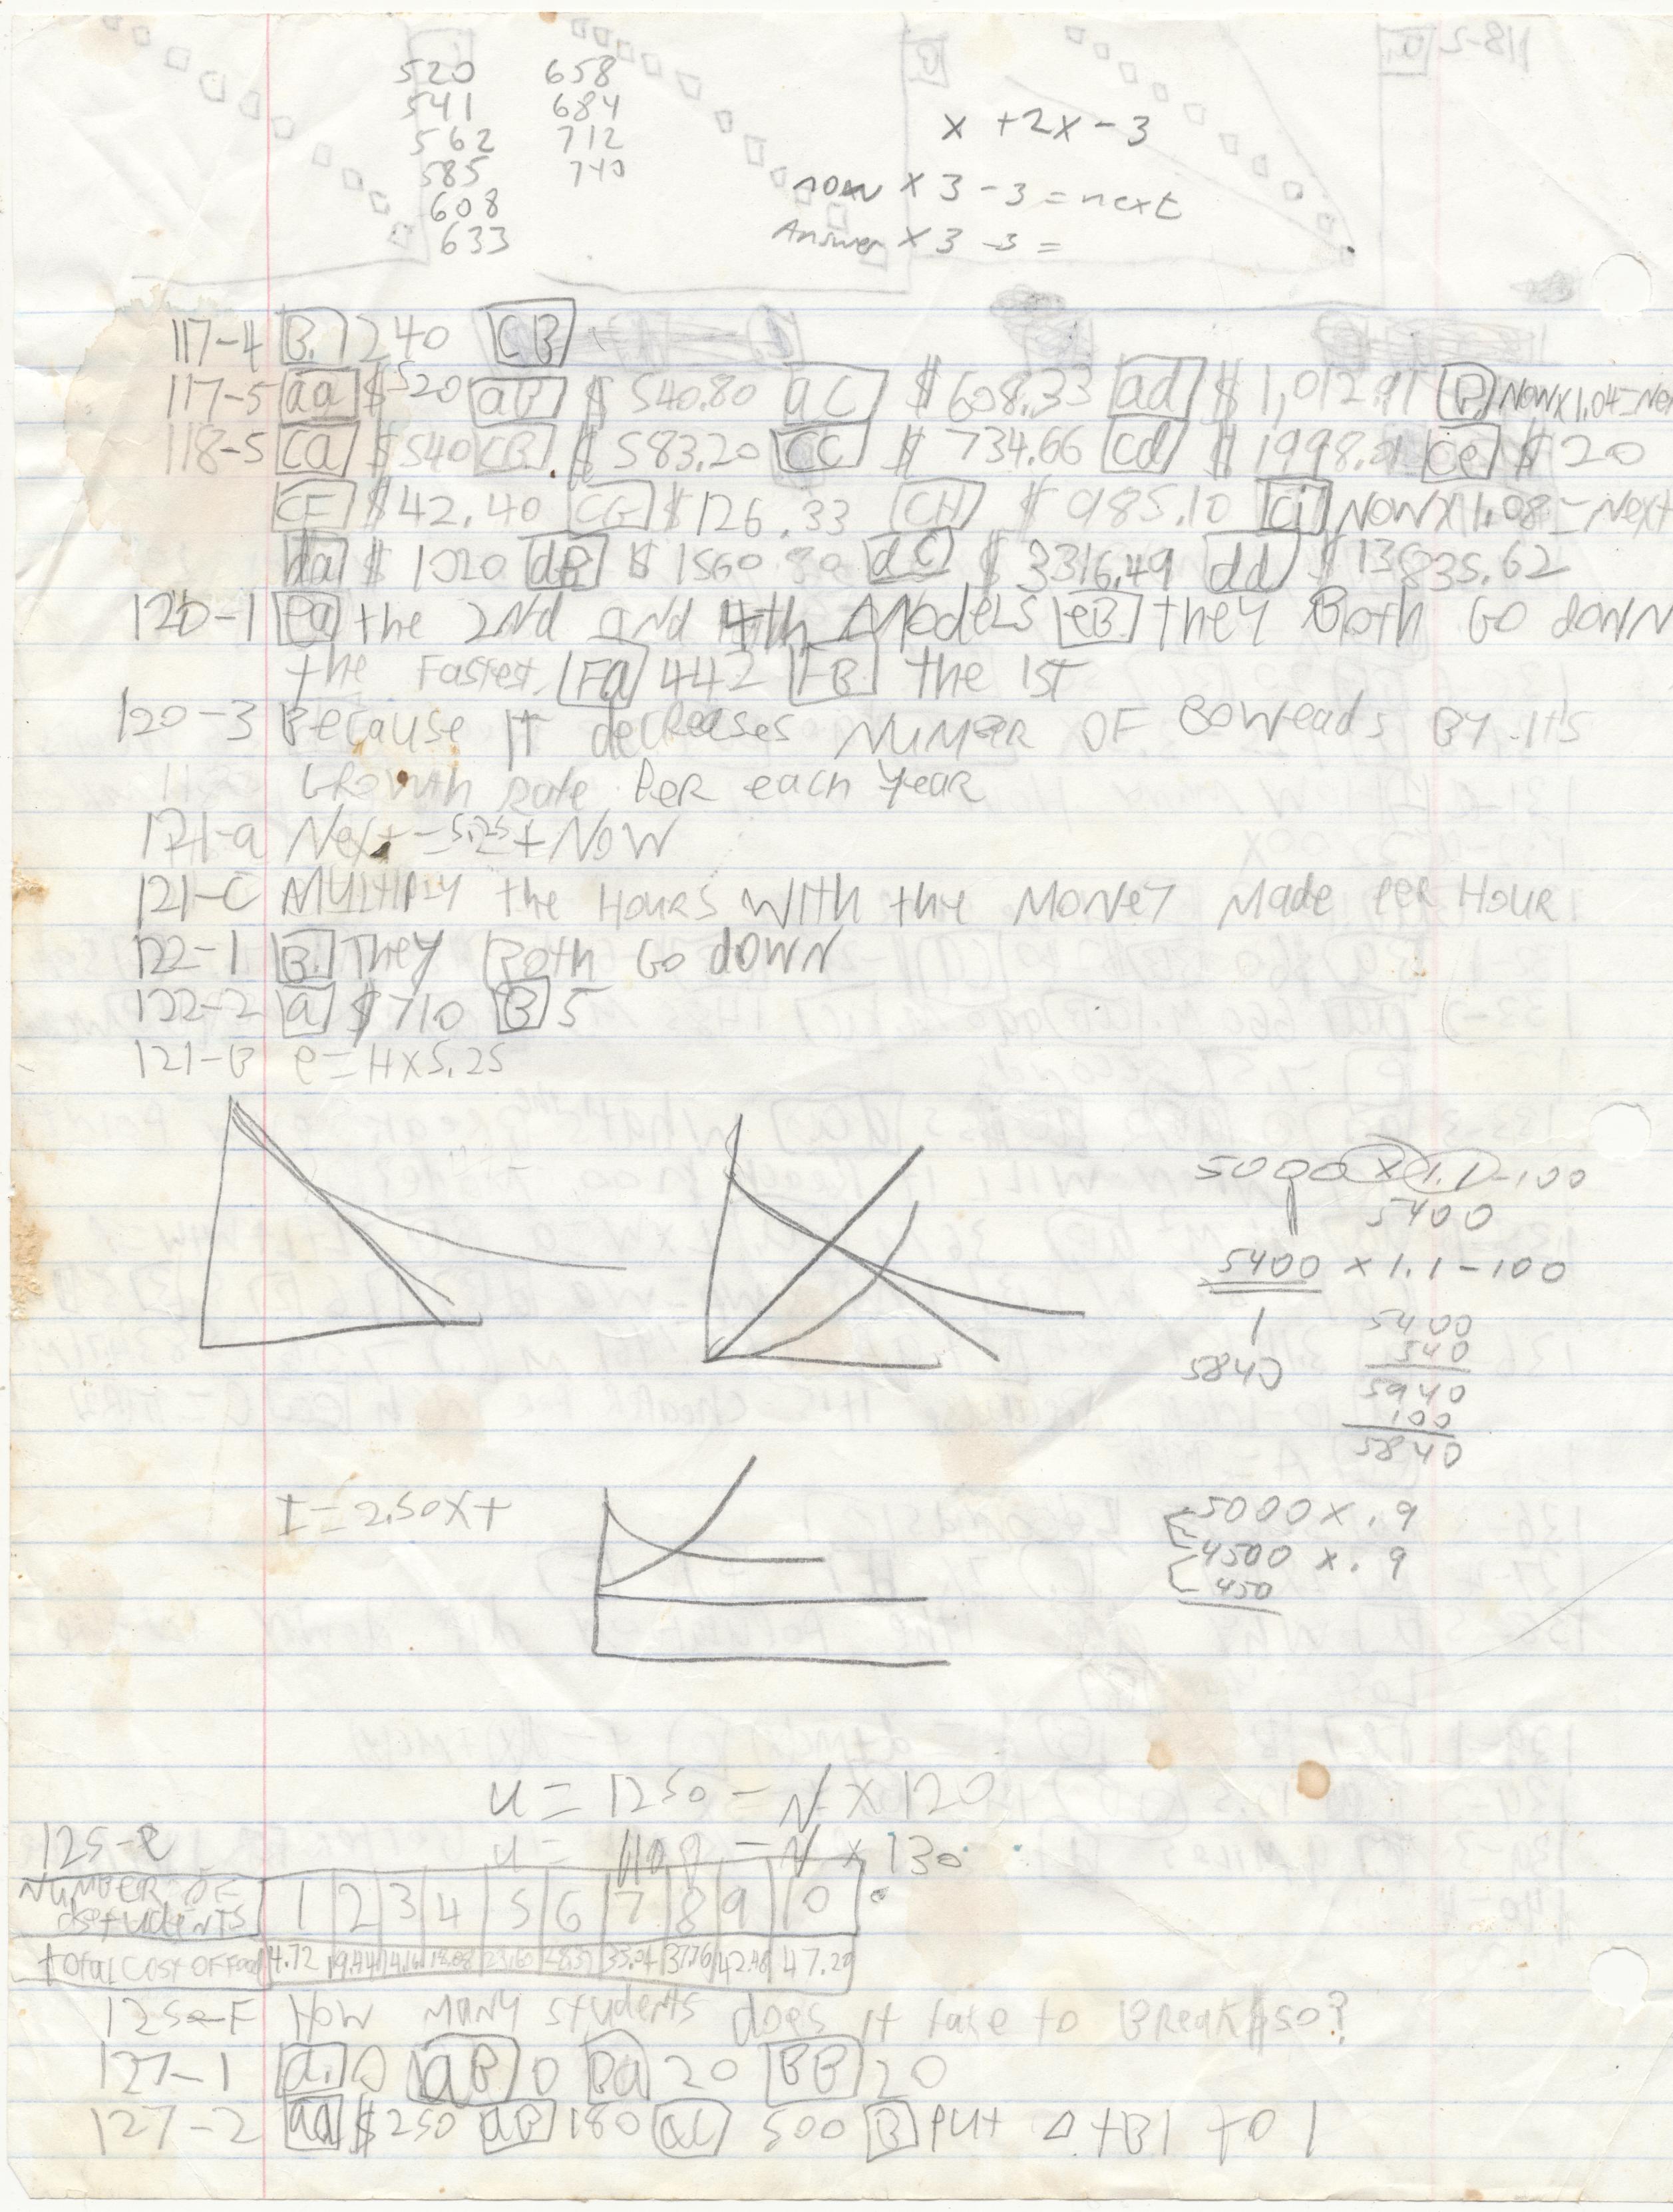 520 658
541 684
562 712
585 740
608
633
x + 2x - 3
now x 3 - 3 = next
Answer x 3 - 3 =
117-4 B. 240 CB
117-5 aa $520 aB $540.80 aC $608.33 ad $1,012.91 B NOWx1.04=Nex
118-5 Ca $540 CB $583.20 CC $734.66 Cd $1998.01 Ce $20
CF $42.40 CG $126.33 CH $985.10 Ci NOWx1.08=Next
da $1020 dB $1560.80 dC $3316.49 dd $13835.62
120-1 ea the 2Nd and 4th Models eB they Both GO dOWN
the Fastest. Fa 442 FB the 1ST
120-3 Because IT decreases NUMBER OF BOWeads BY ITS
GROWth Rate PER each year
121-a Next = 5.25 + NOW
121-C MULTIPLY the HOURS WITH the MONEY Made PER HOUR
122-1 B. They Both GO dOWN
122-2 a $710 B 5
121-B e = H x 5.25
5000 x 1.1 - 100
5400
5400 x 1.1 - 100
5840
5400
540
5940
100
5840
I = 2.50 x t
5000 x .9
4500 x .9
450
u = 1250 - N x 120
u = - N x 130
125-e
NUMBER OF students 1 2 3 4 5 6 7 8 9 10
total Cost OF Food 4.72 9.44 14.16 23.60 33.04 37.76 42.48 47.20
125-F HOW MANY students does it take to Break $50?
127-1 a. 0 aB 0 Ba 20 BB 20
127-2 aa $250 aB 180 aC 500 B PUt to 1